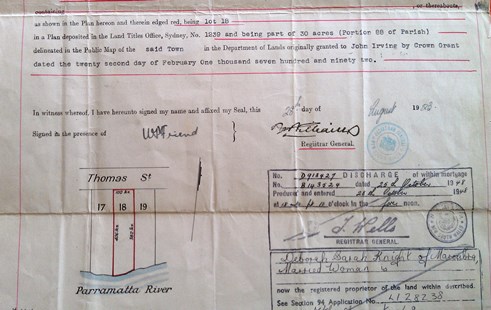 containing or thereabouts,
as shown in the Plan hereon and therein edged red, being lot 18
in a Plan deposited in the Land Titles Office, Sydney, No. 1239 and being part of 30 acres (Portion 88 of Parish)
delineated in the Public Map of the said Town in the Department of Lands originally granted to John Irving by Crown Grant
dated the twenty second day of February One thousand seven hundred and ninety two.
In witness whereof, I have hereunto signed my name and affixed my Seal, this day of August
Signed in the presence of
Registrar General.
Thomas St
17 18 19
Parramatta River
No. DISCHARGE of within mortgage
No. B143529 dated October
Produced and entered October
at o'clock in the fore noon.
J. Wells
REGISTRAR GENERAL
Deborah Sarah Knight of
Married Woman is
now the registered proprietor of the land within described.
See Section 94 Application No.